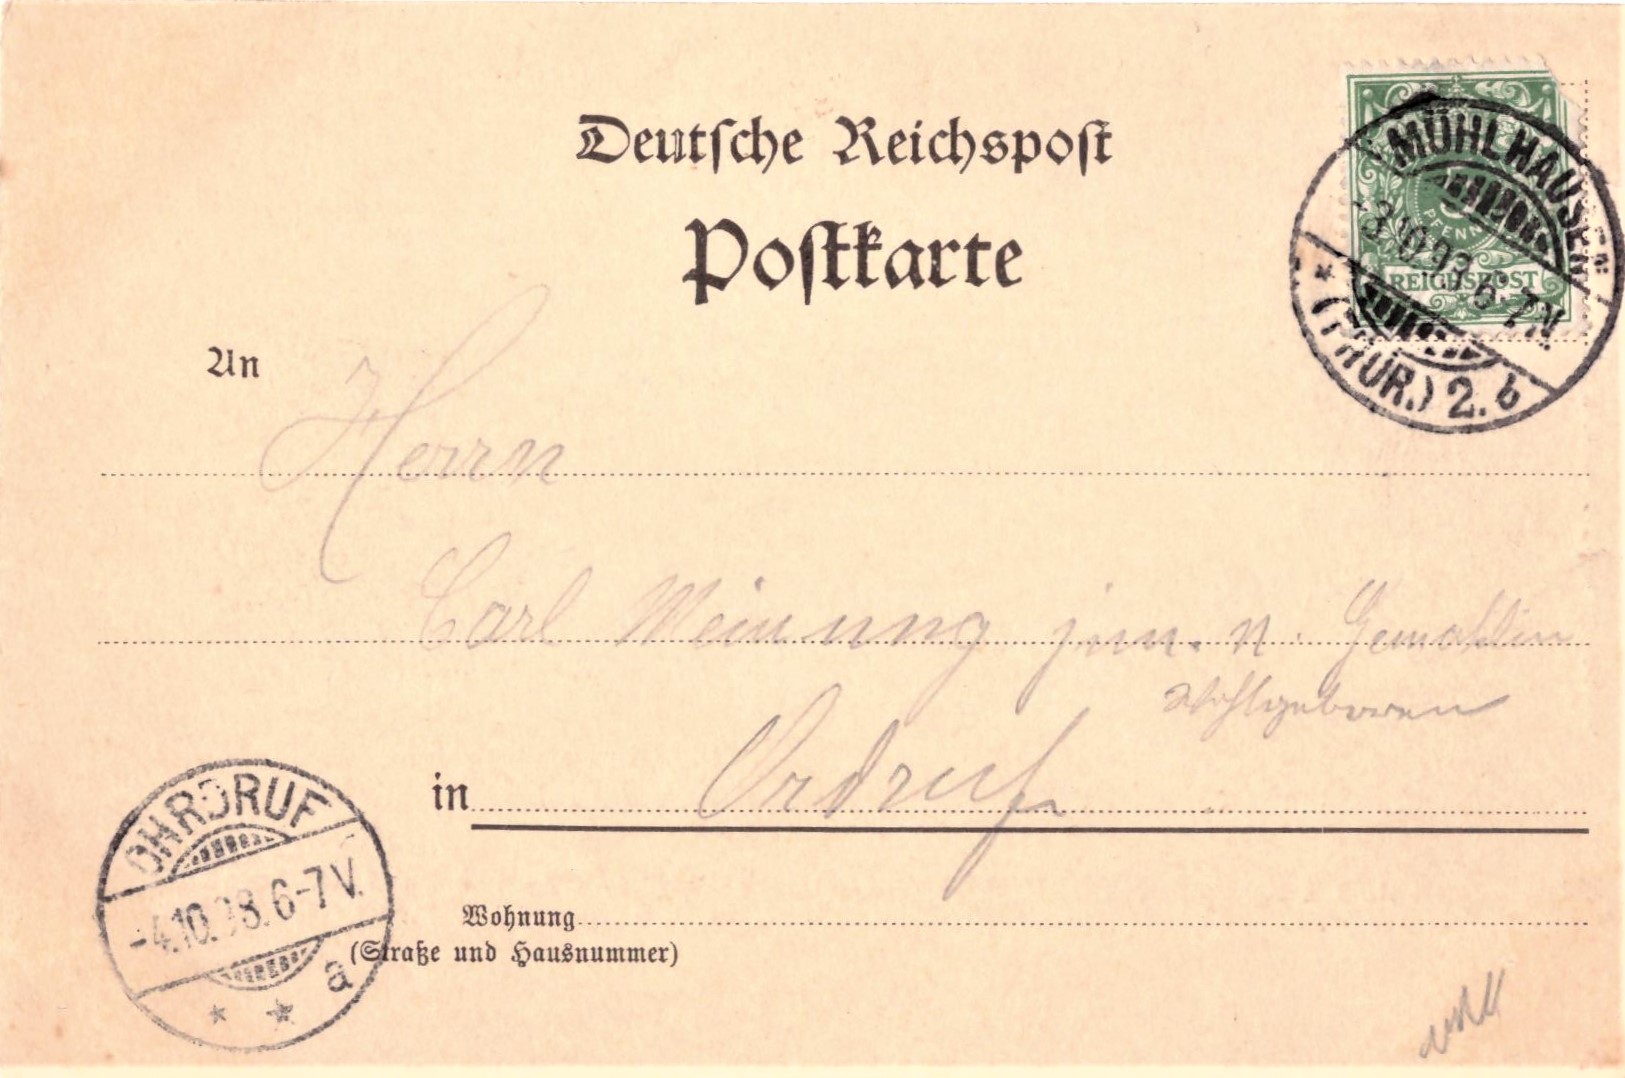 Deutsche Reichspost
Postkarte
5
PFENNIG
REICHSPOST
MÜHLHAUSEN
-3.10.98. 6-7N.
* (THÜR.) 2. b
An
Herrn
Carl Meinung jun. u. Gemahlin
Wohlgeboren
in Ordruf
OHRDRUF
-4.10.98. 6-7V.
* * a
Wohnung
(Straße und Hausnummer)